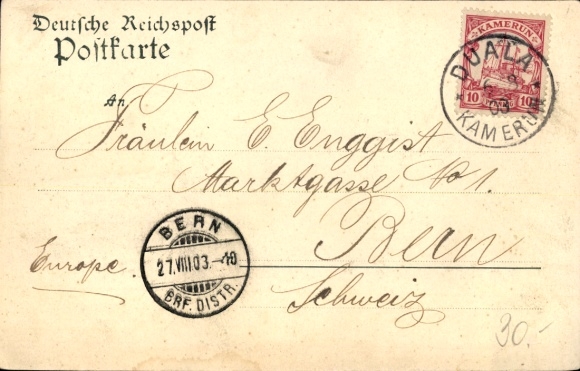 Deutsche Reichspost
Postkarte
KAMERUN
10 10
DUALA
03
KAMERUN
An
Fräulein E. Enggist
Marktgasse No 1.
Bern
Europe.
Schweiz
BERN
27.VIII.03. -10
BRF. DISTR.
30.-